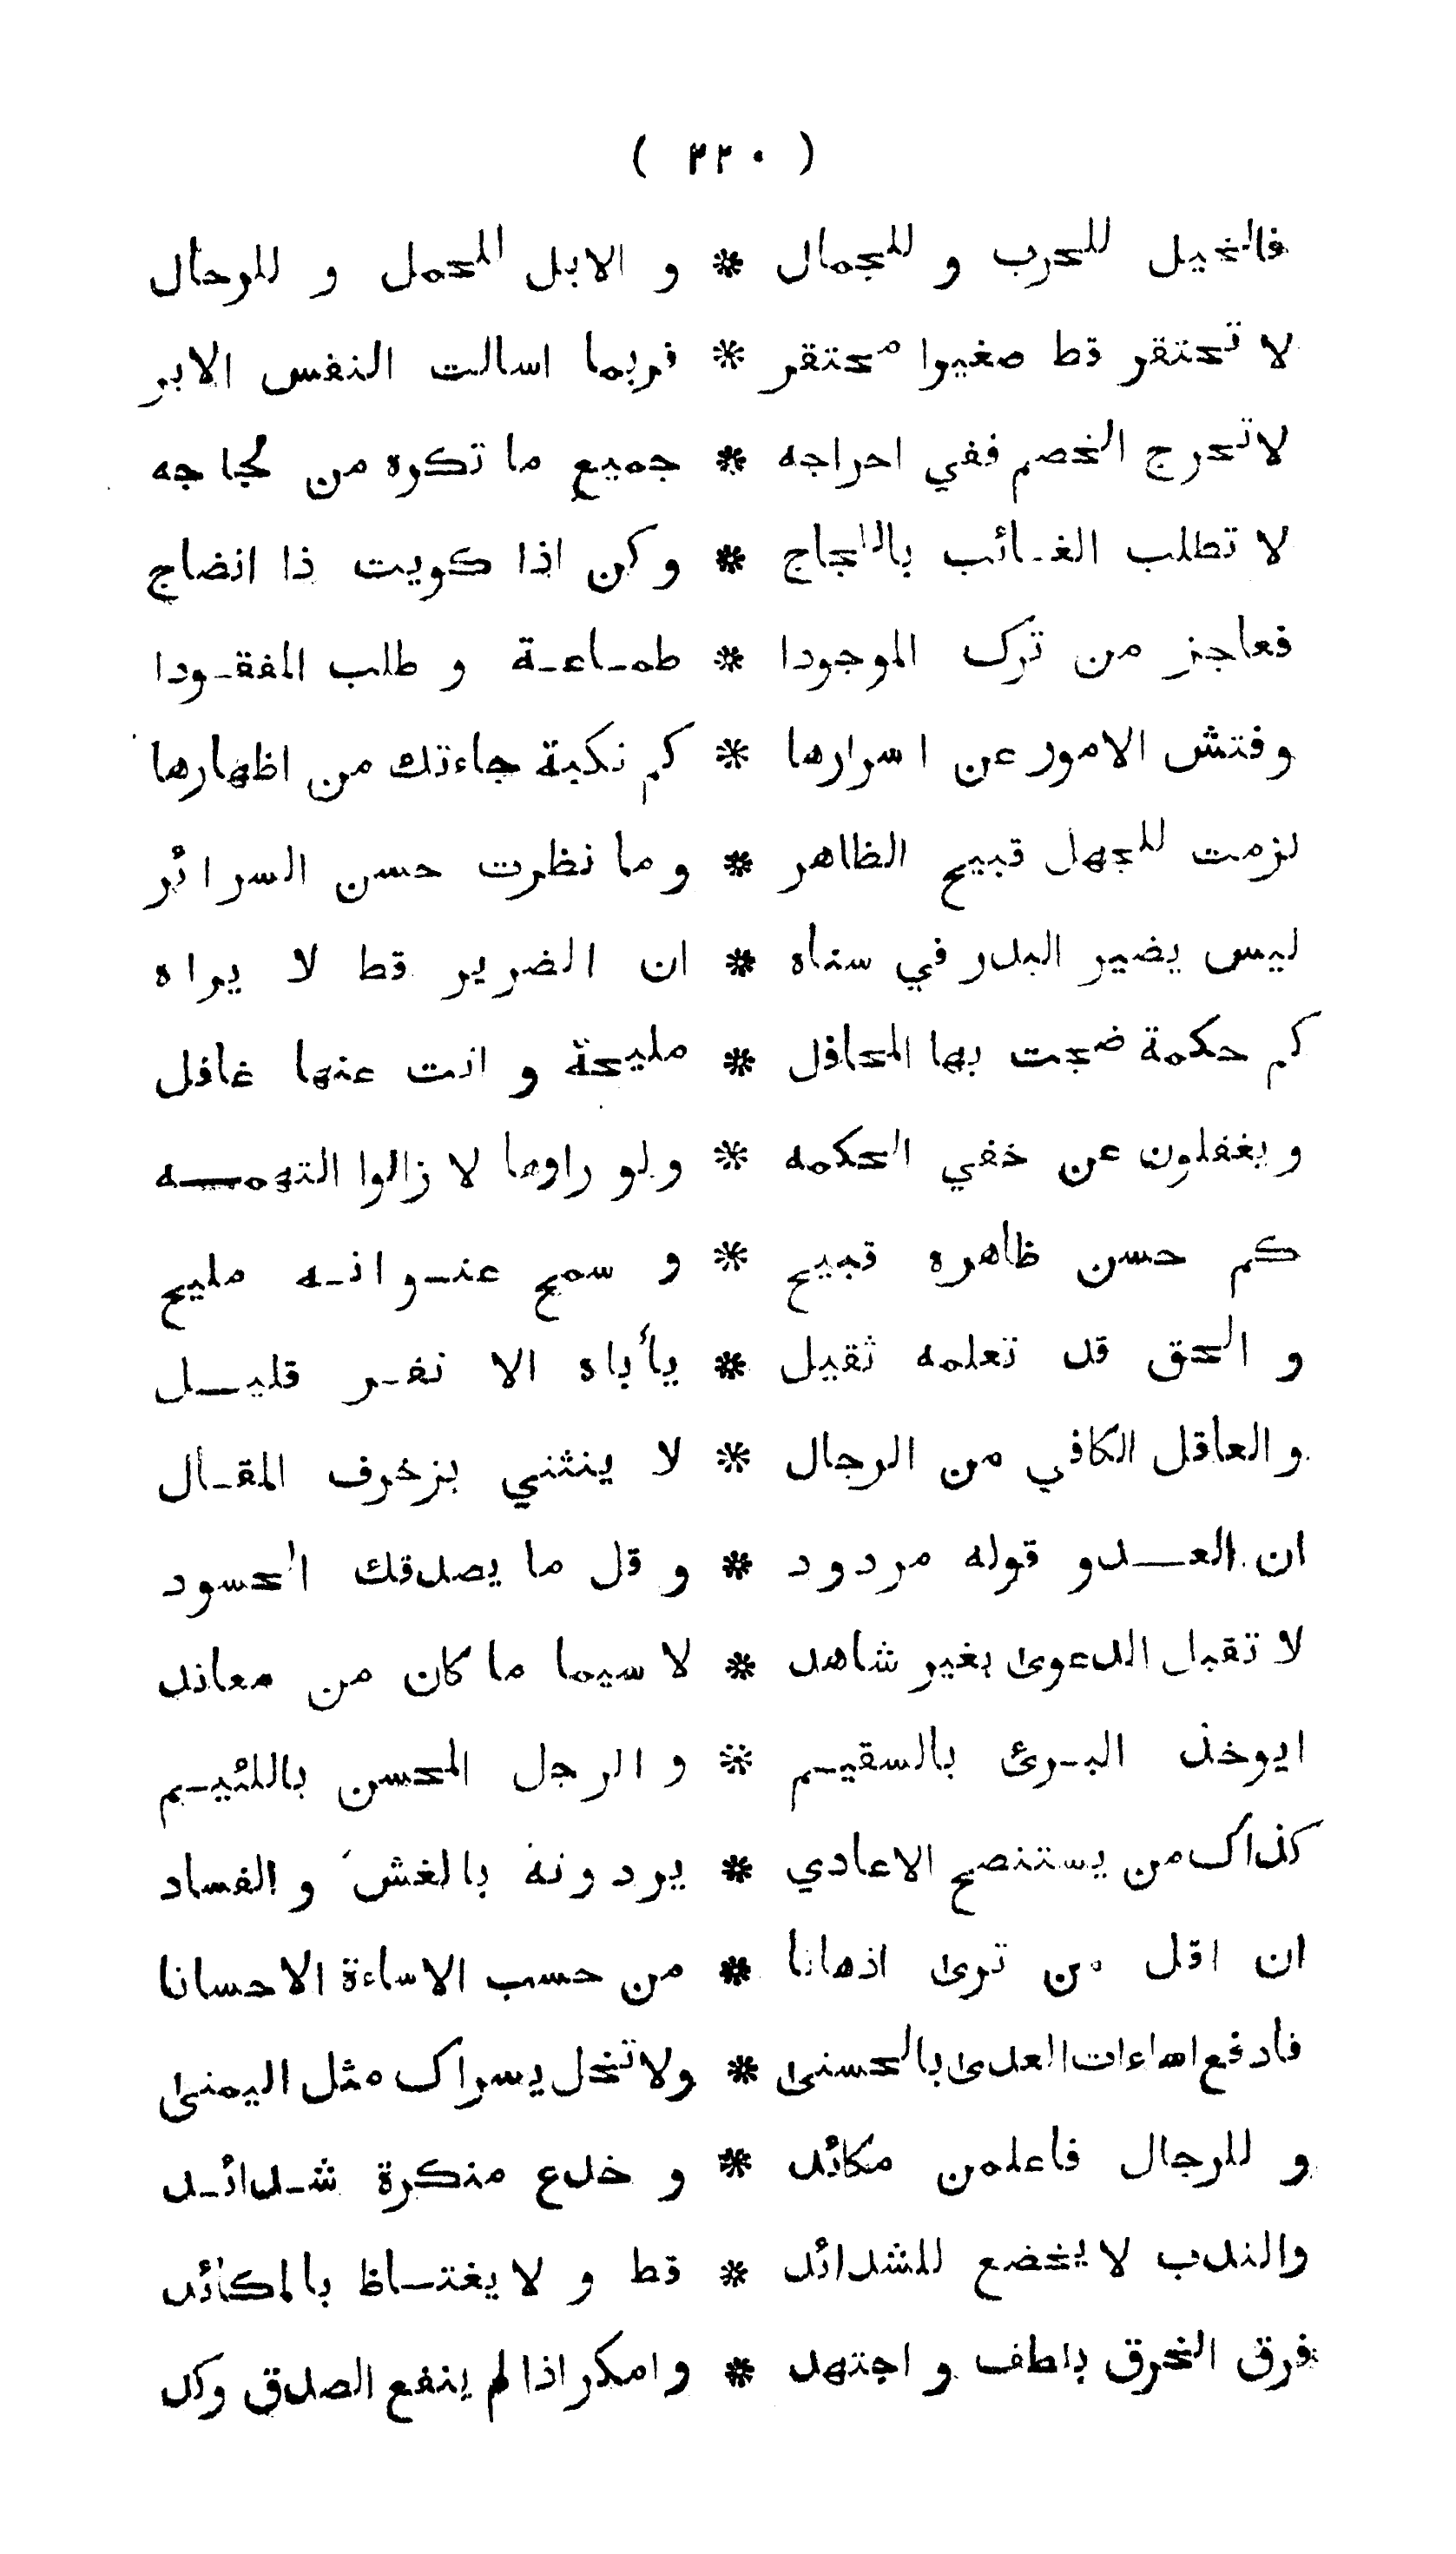 ( ٢٢٠ )
فالخيل للحرب و للجمال * و الابل للحمل و للرحال
لا تحتقر قط صغيرا محتقر * فربما اسالت النفس الابر
لا تحرج الخصم ففي احراجه * جميع ما تكره من لجاجه
لا تطلب الغائب بالحجاج * وكن اذا كويت ذا انضاج
فعاجز من ترك الموجودا * طماعة و طلب المفقودا
وفتش الامور عن اسرارها * كم نكبة جاءتك من اظهارها
لزمت للجهل قبيح الظاهر * وما نظرت حسن السرائر
ليس يضير البدر في سناه * ان الضرير قط لا يراه
كم حكمة ضجت بها المحافل * مليحة و انت عنها غافل
ويغفلون عن خفي الحكمه * ولو راوها لا زالوا التهمه
كم حسن ظاهره قبيح * و سمج عنوانه مليح
و الحق قد تعلمه ثقيل * يأباه الا نفر قليل
والعاقل الكافي من الرجال * لا ينثني بزخرف المقال
ان العدو قوله مردود * و قل ما يصدقك الحسود
لا تقبل الدعوى بغير شاهد * لا سيما ما كان من معاند
ايوخذ البرئ بالسقيم * و الرجل المحسن باللئيم
كذاك من يستنصح الاعادي * يردونه بالغش و الفساد
ان اقل من ترى اذهانا * من حسب الاساءة الاحسانا
فادفع اساءات العدى بالحسنى * ولا تخل يسراك مثل اليمنى
و للرجال فاعلمن مكائد * و خدع منكرة شدائد
والندب لا يخضع للشدائد * قط و لا يغتاظ بالمكائد
فرق الخرق بلطف و اجتهد * وامكر اذا لم ينفع الصدق وكد